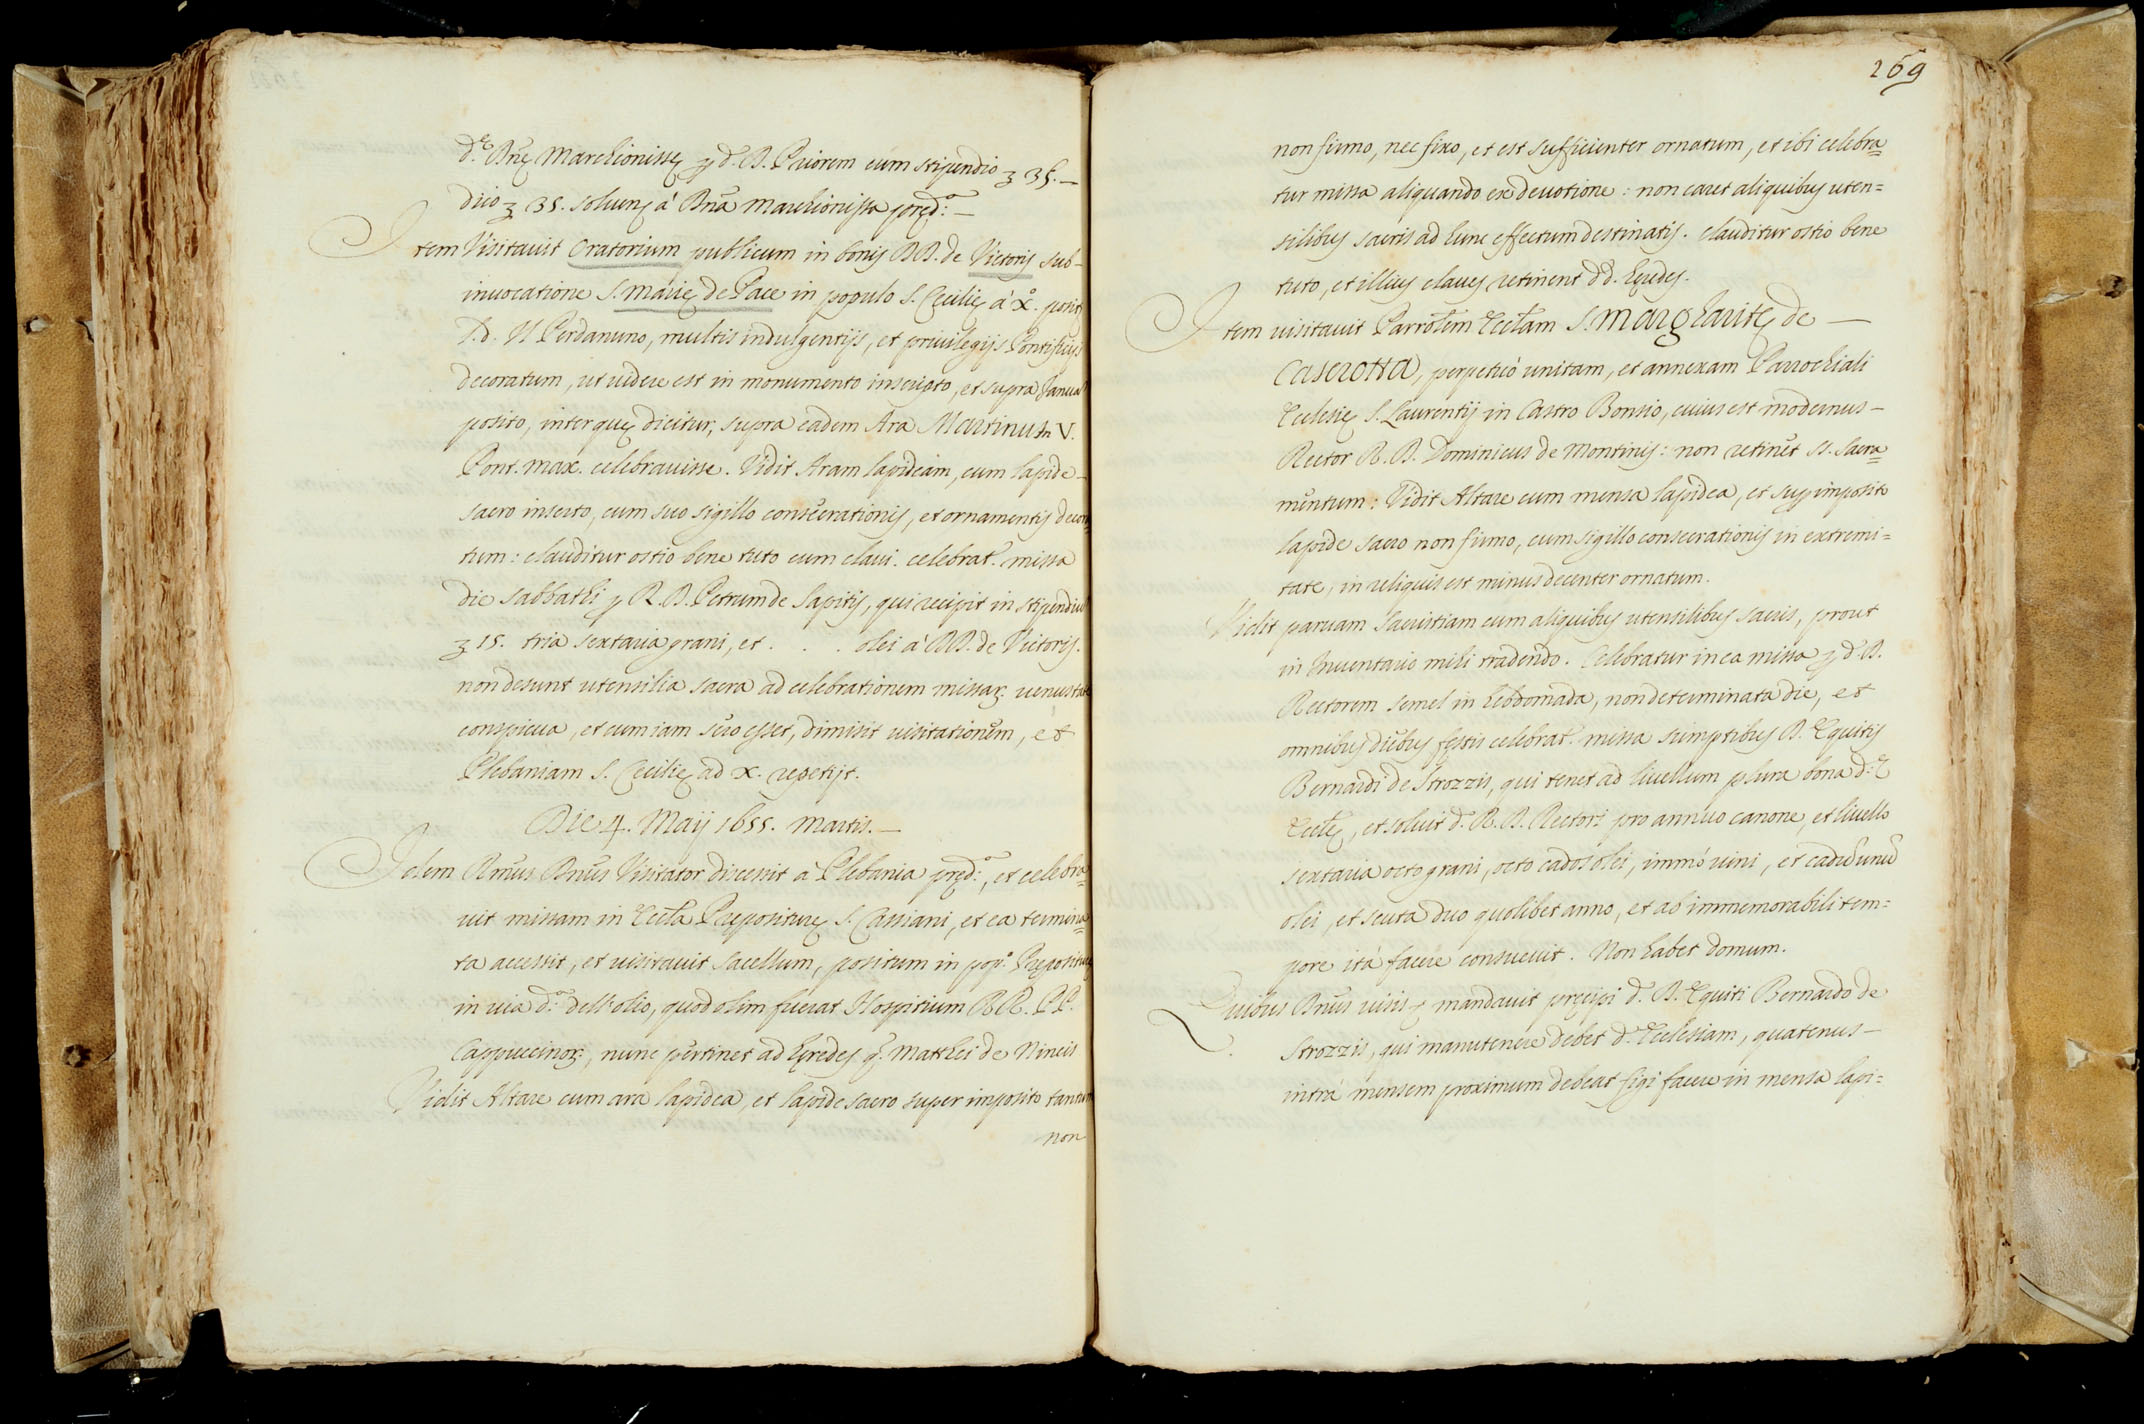 d.ᵉ Dnę Marchionissę ꝑ d. D. Priorem cum stipendio ʒ 35. —
dico ʒ 35. solven. à Dnā Marchionissa pręd.ᵃ —
Item Visitavit Oratorium publicum in bonis DD. de Victorijs sub
invocatione S. Marię de Pace in populo S. Cecilię à X.ᵒ posit
l.d. Il Perdanuno, multis indulgentijs, et privilegijs Pontificijs
decoratum, ut videre est in monumento inscripto, et supra Janua
posito, inter quę dicitur, supra eadem Ara Martinum V.
Pont. Max. celebravisse. Vidit Aram lapideam, cum lapide
sacro inserto, cum suo sigillo consecrationis, et ornamentis decora
tum: clauditur ostio bene tuto cum clavi. celebrat.ʳ missa
die sabbathi ꝑ R. D. Petrum de Sapitis, qui recipit in stipendiu
ʒ 15. tria sextaria grani, et . . . olei à DD. de Victorijs.
non desunt utensilia sacra ad celebrationem missar. venustate
conspicua, et cum iam sero esset, dimisit visitationem, et
Plebaniam S. Cecilię ad X. repetijt.
Die 4. Maij 1655. Martis. —
Idem Rm̃us Dnũs Visitator discessit à Plebania pręd.ᵃ, et celebra=
vit missam in Eccl̃a Pręposituré S. Cassiani, et ea termina=
ta accessit, et visitavit sacellum, positum in pop.ᵒ Prępositurę
in via d.ᵃ dell'olio, quod olim fuerat Hospitium RR. PP.
Cappuccinor., nunc pertinet ad hęredes q. Matthei de Nincis
Vidit Altare cum ara lapidea, et lapide sacro super imposito tantum
non
269
non firmo, nec fixo, et est sufficienter ornatum, et ibi celebra=
tur missa aliquando ex devotione: non caret aliquibus uten=
silibus sacris ad hunc effectum destinatis. clauditur ostio bene
tuto, et illius claves retinent dd. hęredes.
Item visitavit Parrolem Eccl̃am S. Margharitę de —
Caserotta, perpetuò unitam, et annexam Parrochiali
Ecclesię S. Laurentij in Castro Bonsio, cuius est modernus —
Rector R. D. Dominicus de Montinis: non retinet SS. Sacra=
mentum: Vidit Altare cum mensa lapidea, et sup imposito
lapide sacro non firmo, cum sigillo consecrationis in extremi=
tate, in reliquis est minus decenter ornatum.
Vidit parvam Sacristiam cum aliquibus utensilibus sacris, prout
in Inventario mihi tradendo. Celebratur in ea missa ꝑ d. D.
Rectorem semel in hebdomada, non determinata die, et
omnibus diebus festis celebrat.ʳ missa sumptibus D. Equitis
Bernardi de Strozzis, qui tenet ad livellum plura bona d.ᵉ
Eccl̃ę, et solvit d. R. D. Rectori pro annuo canone, et livello
sextaria octo grani, octo cados olei, immò vini, et cadũ unũ
olei, et scuta duo quolibet anno, et ab immemorabili tem=
pore ità facere consuevit. Non habet domum.
Quibus Dnũs visis, mandavit pręcipi d. D. Equiti Bernardo de
Strozzis, qui manutenere debet d. Ecclesiam, quatenus —
intrà mensem proximum debeat figi facere in mensa lapi=